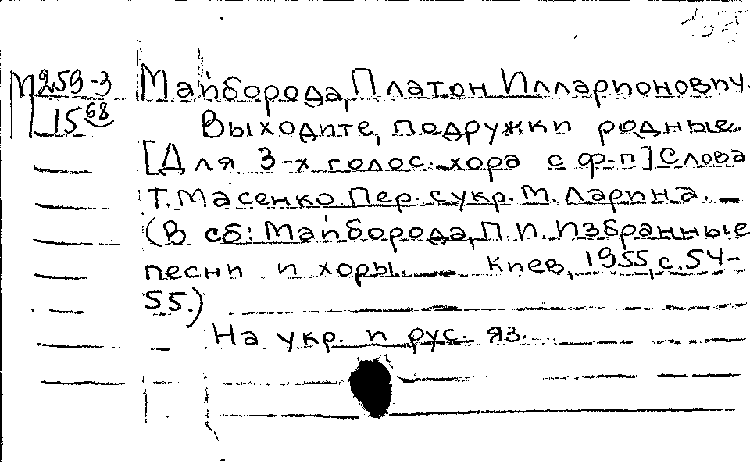 М259-3 Майборода, Платон Илларионович.
15 68 Выходите, подружки родные.
[Для 3-х голос. хора с ф-п] Слова
Т. Масенко. Пер. с укр. М. Ларина. —
(В сб: Майборода, П.И. Избранные
песни и хоры. — Киев, 1955, с. 54-
55.)
На укр. и рус. яз.